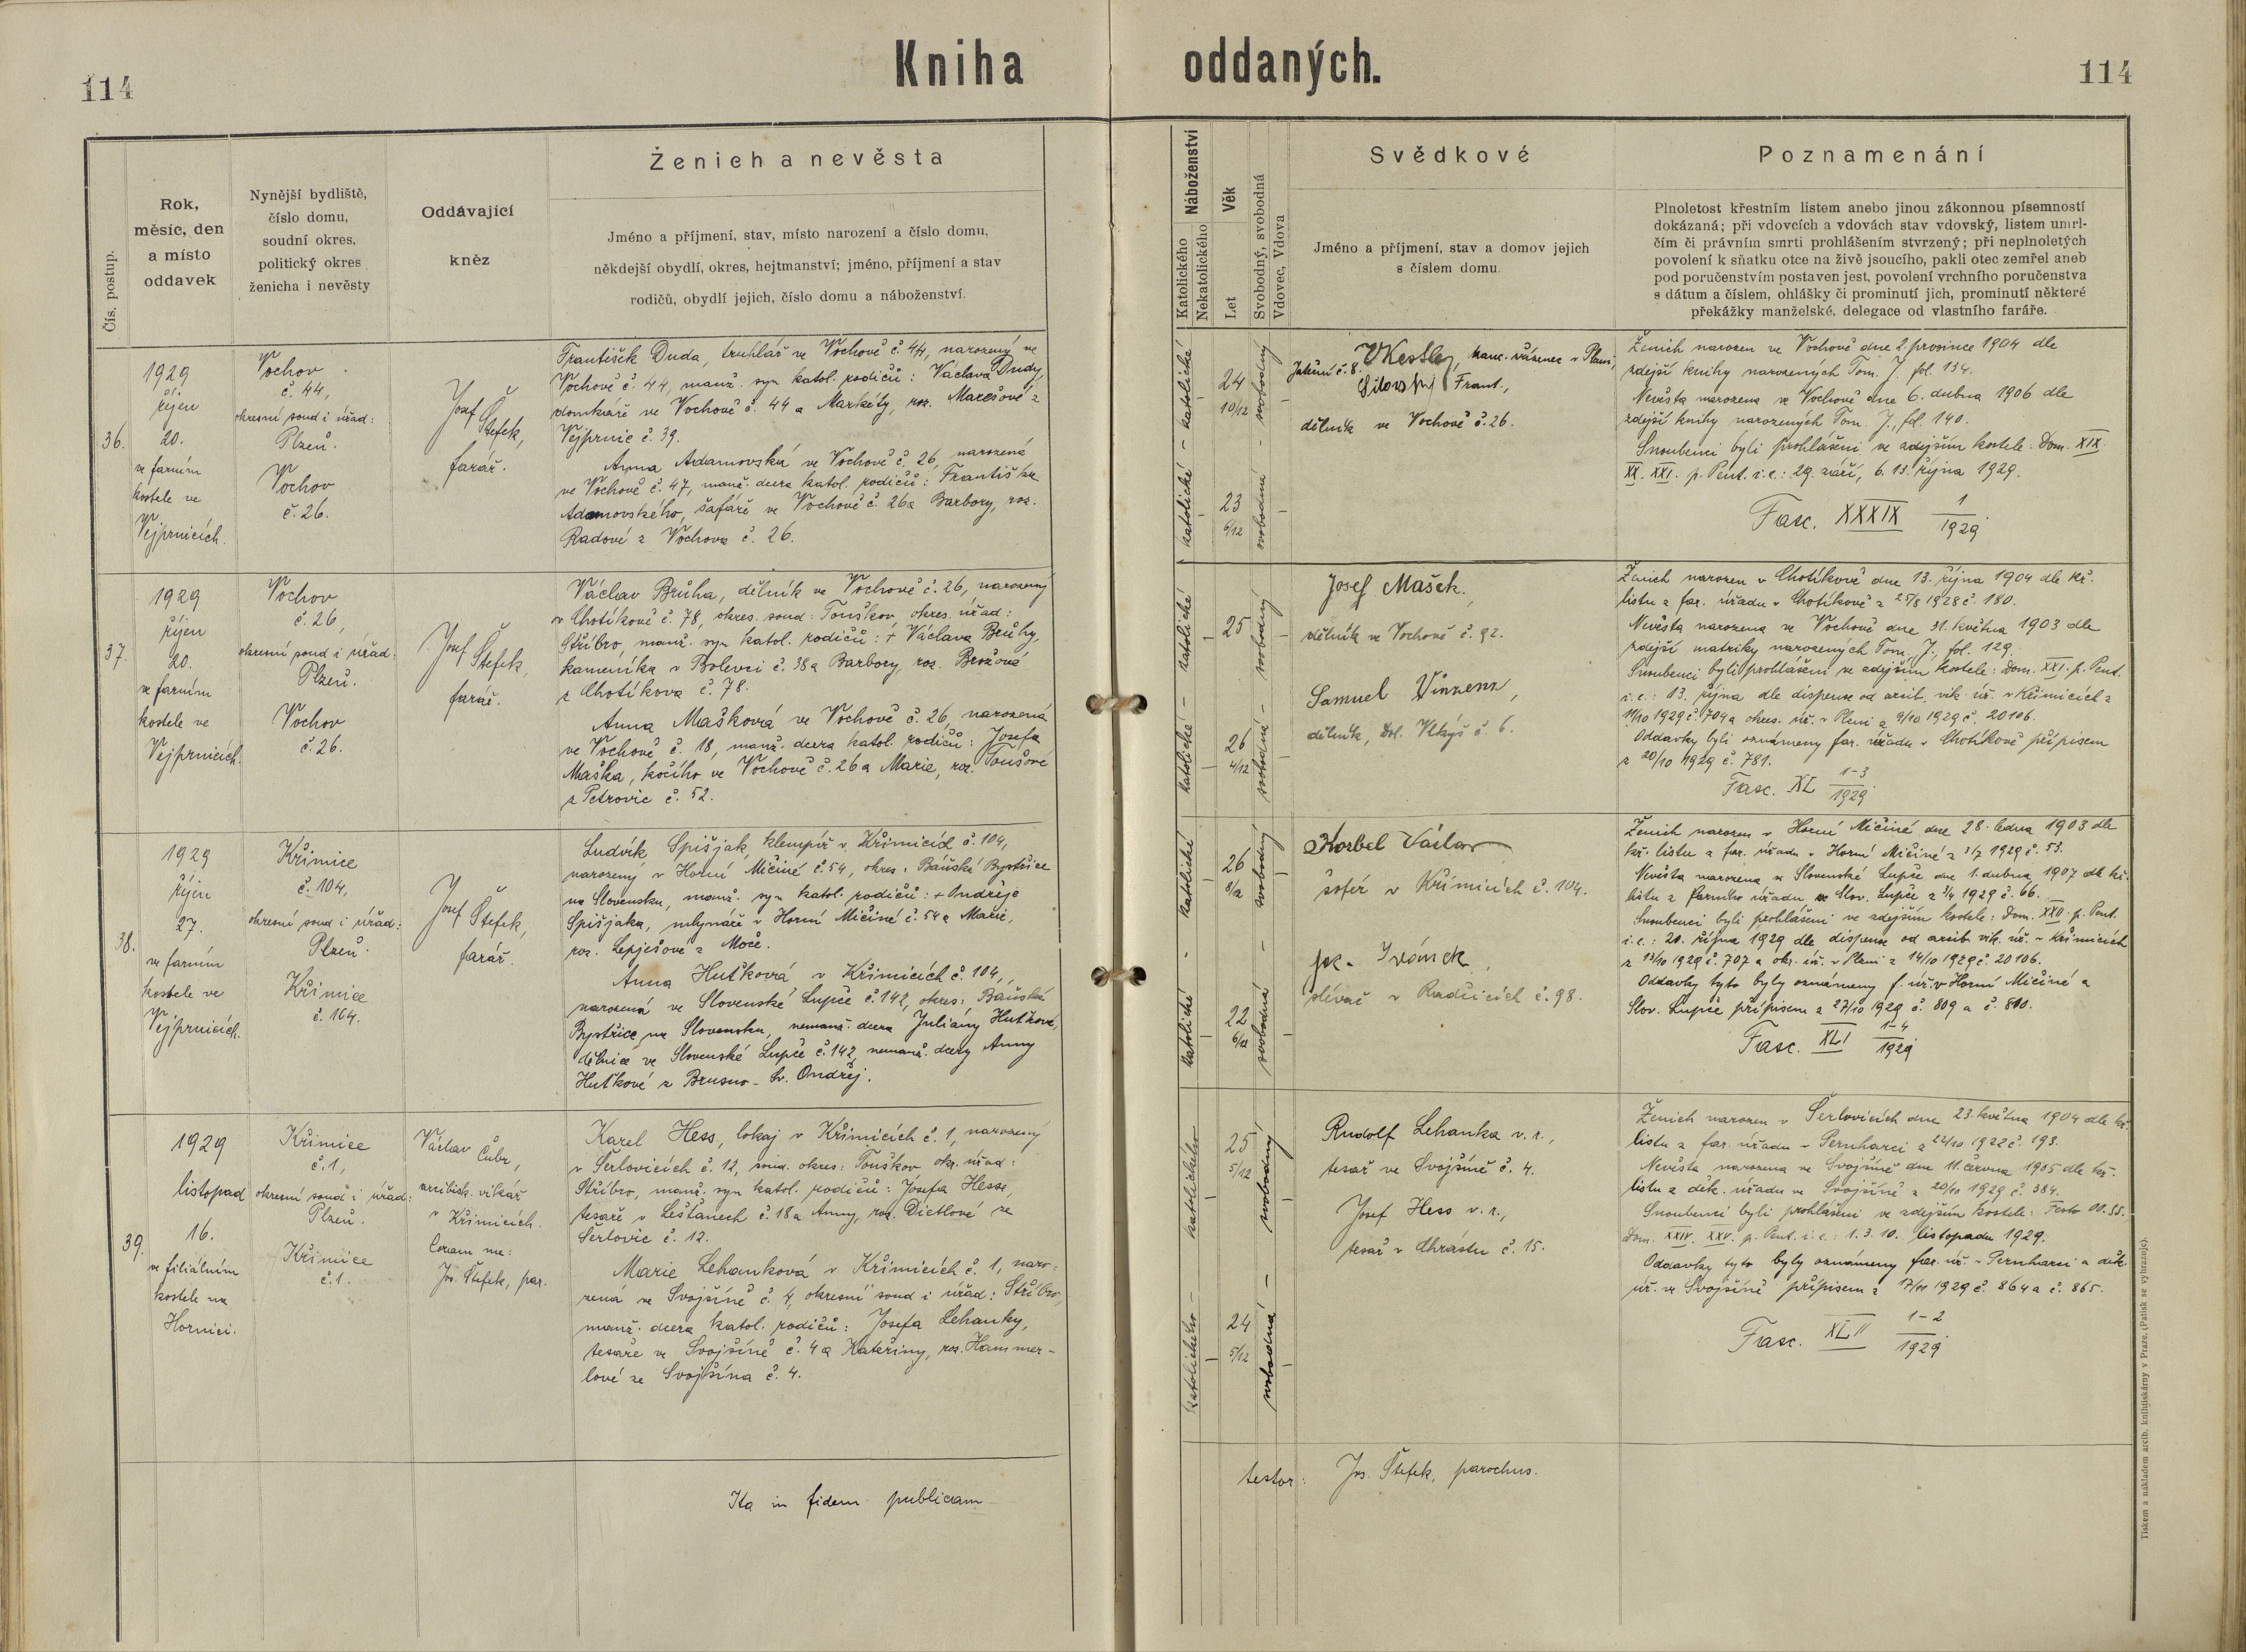 114
Kniha oddaných.
114
Čís. postup.
Rok,
měsíc, den
a místo
oddavek
Nynější bydliště,
číslo domu,
soudní okres,
politický okres
ženicha i nevěsty
Oddávající
kněz
Ženich a nevěsta
Jméno a příjmení, stav, místo narození a číslo domu,
někdejší obydlí, okres, hejtmanství; jméno, příjmení a stav
rodičů, obydlí jejich, číslo domu a náboženství.
Náboženství
Katolického
Nekatolického
Věk
Let
Svobodný, svobodná
Vdovec, Vdova
Svědkové
Jméno a příjmení, stav a domov jejich
s číslem domu.
Poznamenání
Plnoletost křestním listem anebo jinou zákonnou písemností
dokázaná; při vdovcích a vdovách stav vdovský, listem umrl-
čím či právním smrti prohlášením stvrzený; při neplnoletých
povolení k sňatku otce na živě jsoucího, pakli otec zemřel aneb
pod poručenstvím postaven jest, povolení vrchního poručenstva
s dátum a číslem, ohlášky či prominutí jich, prominutí některé
překážky manželské, delegace od vlastního faráře.
36.
1929
říjen
20.
ve farním
kostele ve
Vejprnicích.
Vochov
č. 44,
okresní soud i úřad:
Plzeň.
Vochov
č. 26.
Josef
Štefek,
farář.
František Duda, truhlář ve Vochově č. 44, narozený ve
Vochově č. 44, manž. syn katol. rodičů: Václava Dudy,
domkáře ve Vochově č. 44 a Markéty, roz. Marešové z
Vejprnic č. 39.
Anna Adamovská ve Vochově č. 26, narozená
ve Vochově č. 47, manž. dcera katol. rodičů: Františka
Adamovského, šafáře ve Vochově č. 26 a Barbory, roz.
Radové z Vochova č. 26.
katolické - katolické
24
10/12
23
6/12
svobodný
svobodná
č. 8.
Frant.,
dělník ve Vochově č. 26.
Ženich narozen ve Vochově dne 2. prosince 1904 dle
zdejší knihy narozených Tom. J. fol. 134.
Nevěsta narozena ve Vochově dne 6. dubna 1906 dle
zdejší knihy narozených Tom. J., fol. 140.
Snoubenci byli prohlášeni ve zdejším kostele: Dom. XIX.
XX. XXI. p. Pent. i. e.: 29. září, 6. 13. října 1929.
Fasc. XXXIX 1/1929
37.
1929
říjen
20.
ve farním
kostele ve
Vejprnicích.
Vochov
č. 26,
okresní soud i úřad:
Plzeň.
Vochov
č. 26.
Josef
Štefek,
farář.
Václav Bruha, dělník ve Vochově č. 26, narozený
v Chotíkově č. 78, okres. soud: Touškov, okres. úřad:
Stříbro, manž. syn katol. rodičů: + Václava Bruhy,
kameníka v Bolevci č. 38 a Barbory, roz. Brožové
z Chotíkova č. 78.
Anna Mašková ve Vochově č. 26, narozená
ve Vochově č. 18, manž. dcera katol. rodičů: Josefa
Maška, kočího ve Vochově č. 26 a Marie, roz. Toušové
z Petrovic č. 52.
katolické - katolické
25
26
4/12
svobodný
svobodná
Josef Mašek,
dělník ve Vochově č. 92.
Samuel Vinzenz,
dělník, Dol. Vlkýš č. 6.
Ženich narozen v Chotíkově dne 13. října 1904 dle kř.
listu z far. úřadu v Chotíkově z 25/8 1928 č. 180.
Nevěsta narozena ve Vochově dne 31. května 1903 dle
zdejší matriky narozených Tom. J., fol. 129.
Snoubenci byli prohlášeni ve zdejším kostele: Dom. XXI. p. Pent.
i. e.: 13. října dle dispense od arcib. vik. úř. v Křimicích z
11/10 1929 č. 704 a okres. úř. v Plzni z 9/10 1929 č. 20106.
Oddavky byli oznámeny far. úřadu v Chotíkově přípisem
z 20/10 1929 č. 781.
Fasc. XL 1-3/1929
38.
1929
říjen
27.
ve farním
kostele ve
Vejprnicích.
Křimice
č. 104,
okresní soud i úřad:
Plzeň.
Křimice
č. 104.
Josef
Štefek,
farář.
Ludvík Spišjak, klempíř v Křimicích č. 104,
narozený v Horní Mičiné č. 54, okres: Báňská Bystřice
na Slovensku, manž. syn katol. rodičů: + Ondřeje
Spišjaka, mlynáře v Horní Mičiné č. 54 a Marie,
roz. Lepješové z Moče.
Anna Huťková v Křimicích č. 104,
narozená ve Slovenské Lupče č. 142, okres: Báňská
Bystřice na Slovensku, nemanž. dcera Juliány Huťkové,
dělnice ve Slovenské Lupče č. 142, nemanž. dcery Anny
Huťkové z Brusno-Sv. Ondřej.
katolické - katolické
26
8/12
22
6/12
svobodný
svobodná
Korbel Václav
šofér v Křimicích č. 104.
Ivánek,
v Radčicích č. 98.
Ženich narozen v Horní Mičiné dne 28. ledna 1903 dle
kř. listu z far. úřadu v Horní Mičiné z 3/7 1929 č. 53.
Nevěsta narozena ve Slovenské Lupče dne 1. dubna 1907 dle kř.
listu z farního úřadu ve Slov. Lupče z 3/4 1929 č. 66.
Snoubenci byli prohlášeni ve zdejším kostele: Dom. XXII. p. Pent.
i. e.: 20. října 1929 dle dispense od arcib. vik. úř. v Křimicích
z 13/10 1929 č. 707 a okr. úř. v Plzni z 14/10 1929 č. 20106.
Oddavky tyto byly oznámeny f. úř. v Horní Mičiné a
Slov. Lupče přípisem z 27/10 1929 č. 809 a č. 810.
Fasc. XLI 1-4/1929
39.
1929
listopad
16.
ve filiálním
kostele na
Hornici.
Křimice
č. 1,
okresní soud i úřad:
Plzeň.
Křimice
č. 1.
Václav Čubr,
arcibisk. vikář
v Křimicích.
Coram me:
Jos. Štefek, par.
Karel Hess, lokaj v Křimicích č. 1, narozený
v Šerlovicích č. 12, soud. okres: Touškov okr. úřad:
Stříbro, manž. syn katol. rodičů: Josefa Hesse,
tesaře v Leštanech č. 18 a Anny, roz. Dietlové ze
Šerlovic č. 12.
Marie Lehanková v Křimicích č. 1, naro-
zená ve Svojšíně č. 4, okresní soud i úřad: Stříbro,
manž. dcera katol. rodičů: Josefa Lehanky,
tesaře ve Svojšíně č. 4 a Kateřiny, roz. Hammer-
lové ze Svojšína č. 4.
katolického - katolického
25
5/12
24
5/12
svobodný
svobodná
Rudolf Lehanka v. r.,
tesař ve Svojšíně č. 4.
Josef Hess v. r.,
tesař v Chrástu č. 15.
Ženich narozen v Šerlovicích dne 23. května 1904 dle kř.
listu z far. úřadu v Pernharci z 22/10 1922 č. 193.
Nevěsta narozena ve Svojšíně dne 11. června 1905 dle kř.
listu z děk. úřadu ve Svojšíně z 20/10 1929 č. 384.
Snoubenci byli prohlášeni ve zdejším kostele: Festo OO. SS.,
Dom. XXIV. XXV. p. Pent. i. e.: 1. 3. 10. listopadu 1929.
Oddavky tyto byly oznámeny far. úř. v Pernharci a děk.
úř. ve Svojšíně přípisem z 17/11 1929 č. 864 a č. 865.
Fasc. XLII 1-2/1929
Ita in fidem publicam
testor: Jos. Štefek, parochus.
Tiskem a nákladem arcib. knihtiskárny v Praze. (Patisk se vyhrazuje).